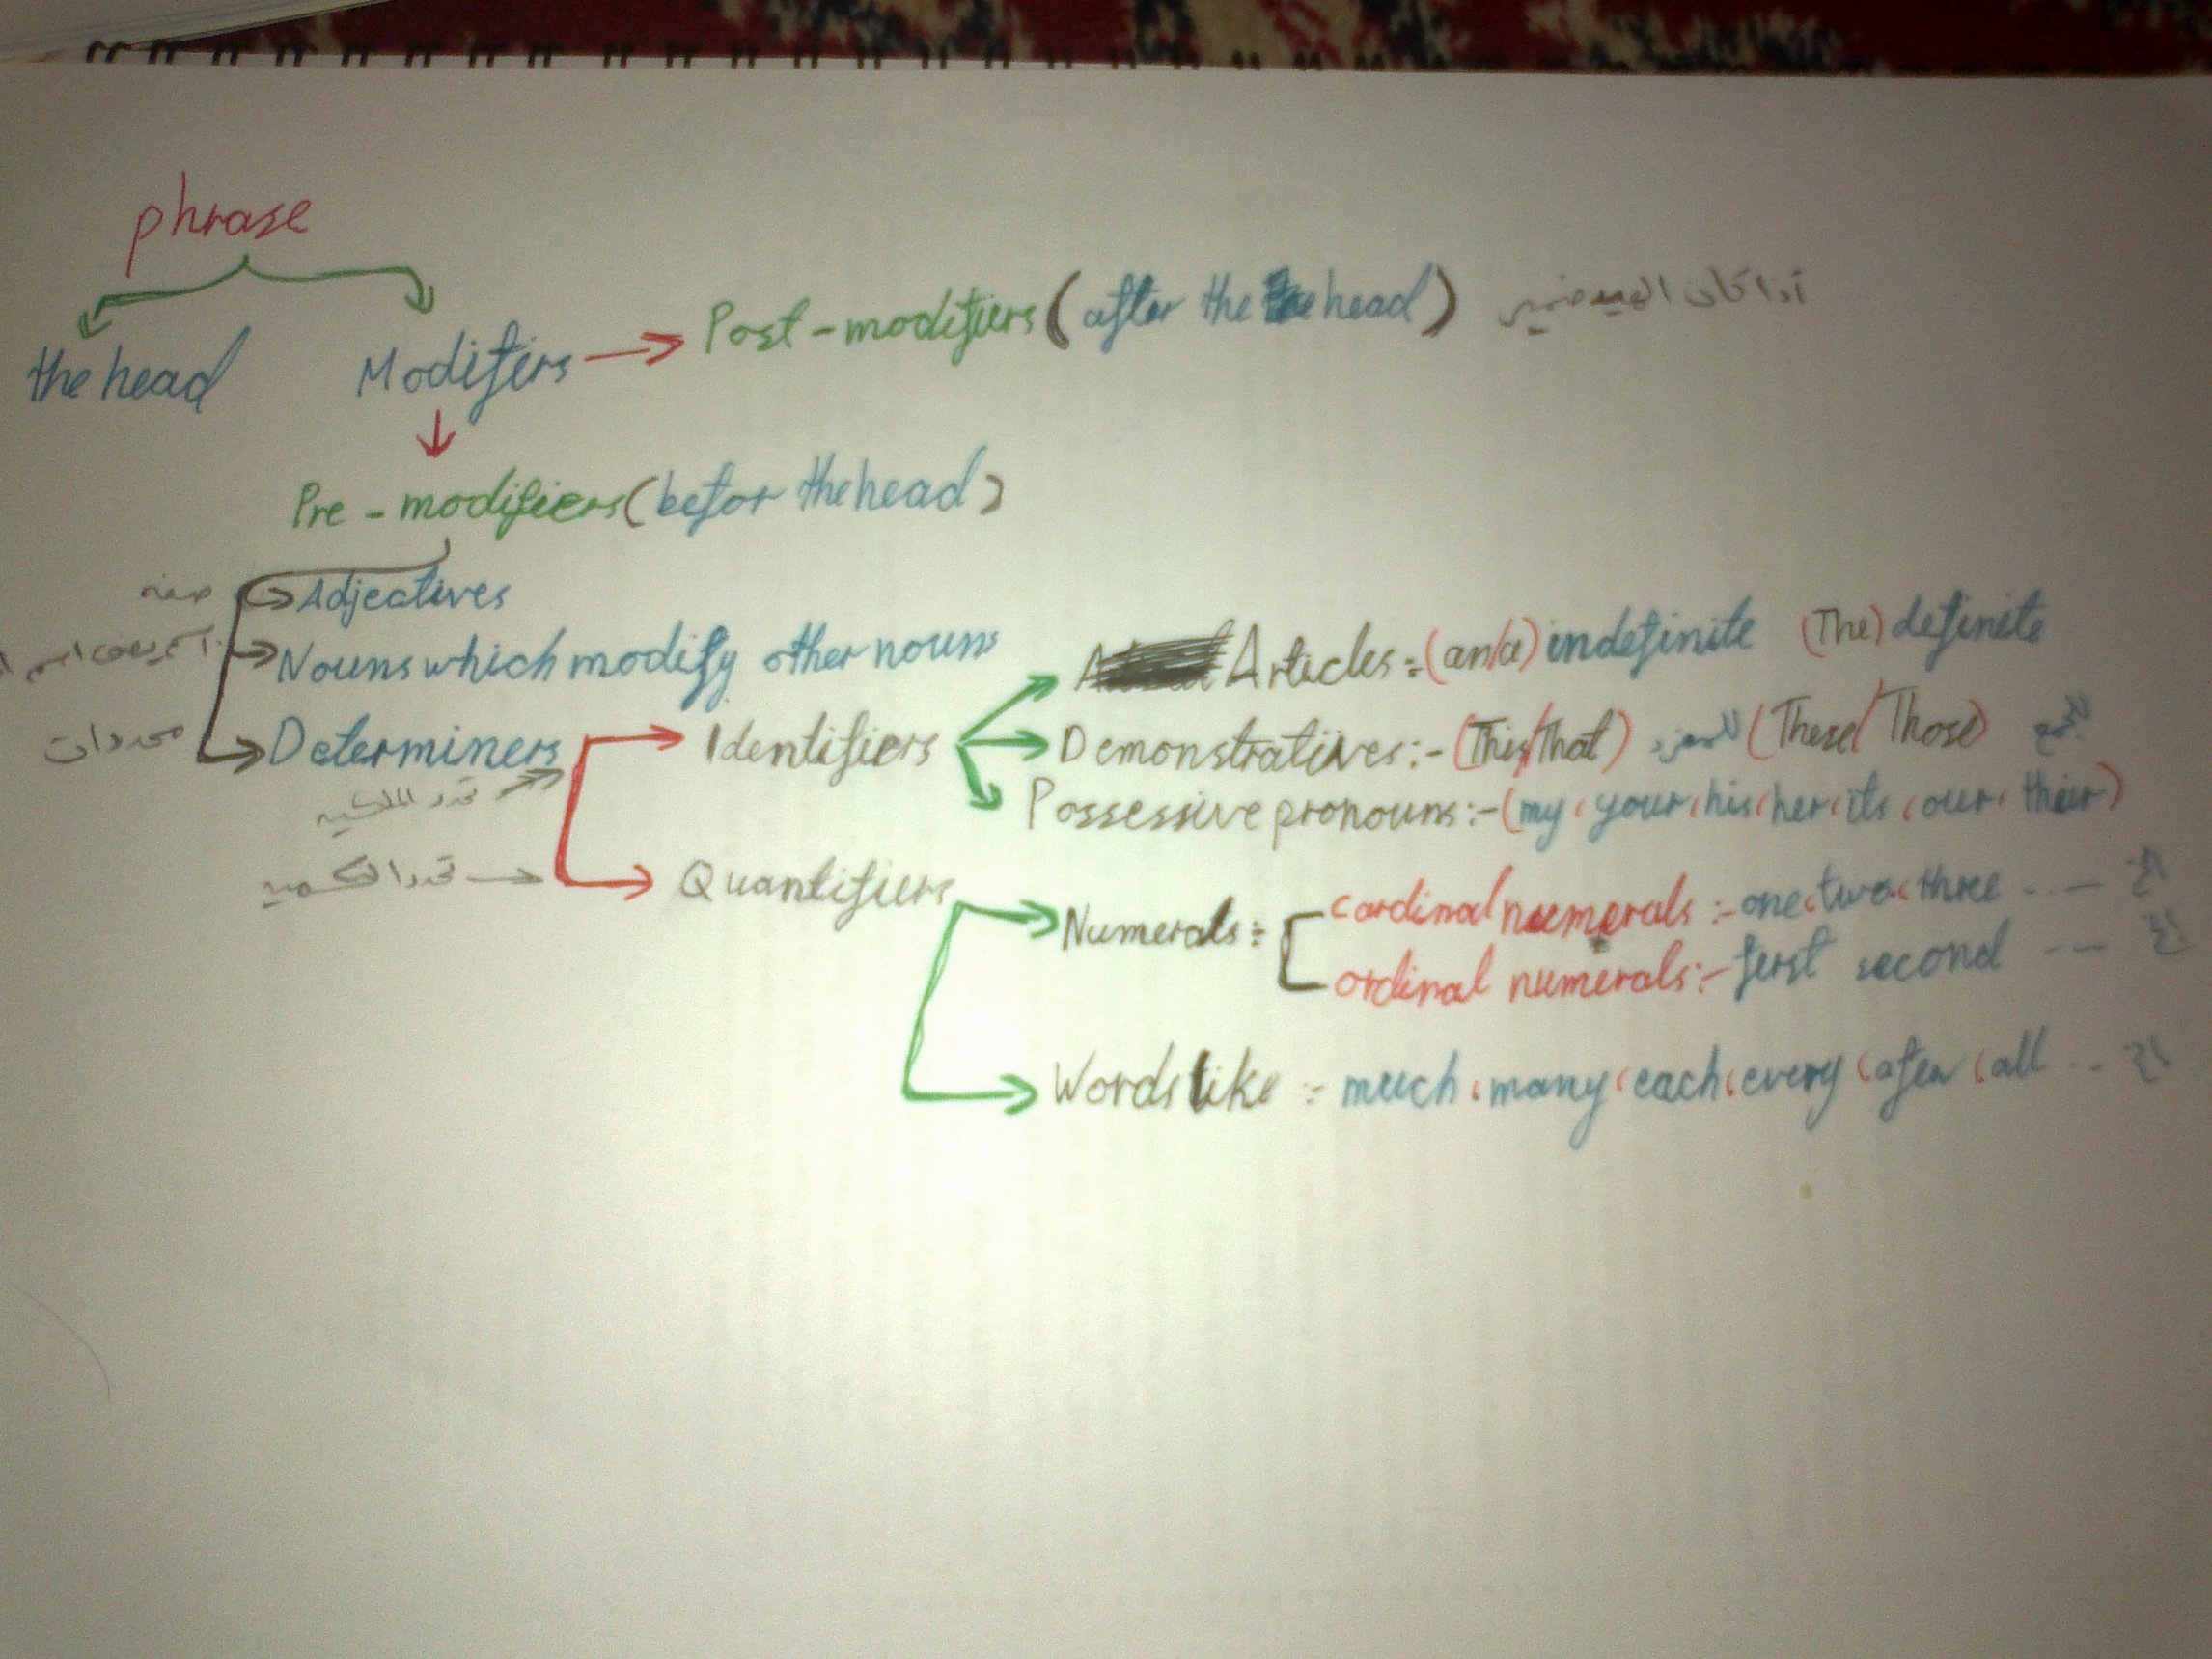 phrase
the head Modifirs Post-modifiers (after the head)
Pre-modifiers (befor the head)
صفه Adjectives
Nouns which modify other nouns
Articles:- (an/a) indefinite (The) definite
محددات Determiners Identifiers Demonstratives:- (This/That) للمفرد (These/Those) للجمع
تحدد الملكيه Possessive pronouns:- (my, your, his, her, its, our, their)
تحدد الكميه Quantifiers
Numerals:- cardinal numerals:- one, two, three ... الخ
ordinal numerals:- ferst second ... الخ
Words like:- much, many, each, every, a few, all ... الخ